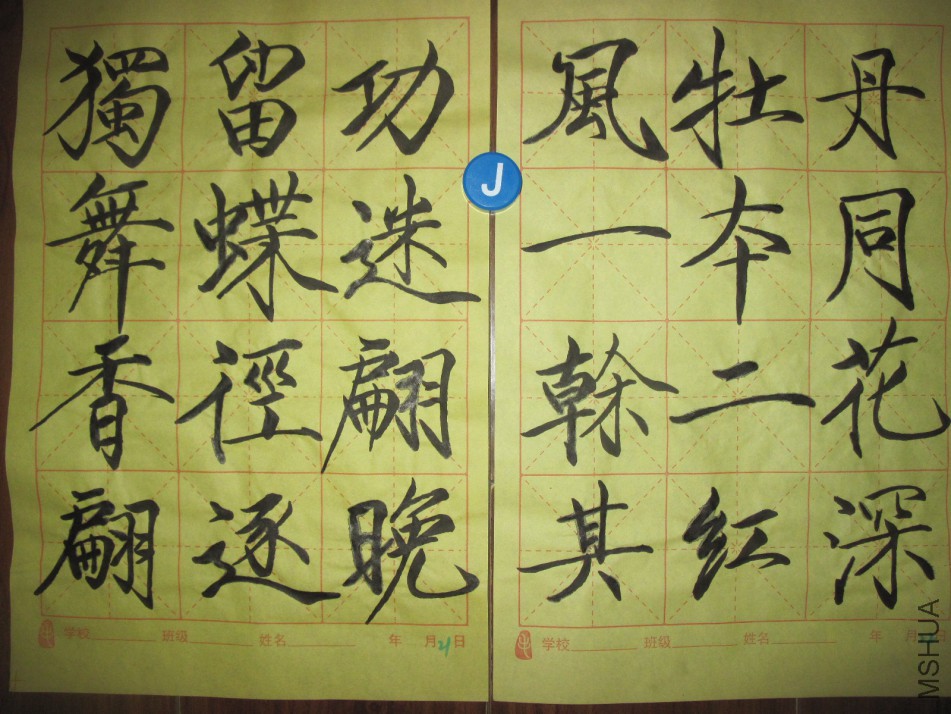 獨留功
舞蝶迷
香徑翩
翩逐晚
学校 班级 姓名 年 月21日
J
風牡丹
一本同
幹二花
其红深
学校 班级 姓名 年 月
MSHUA